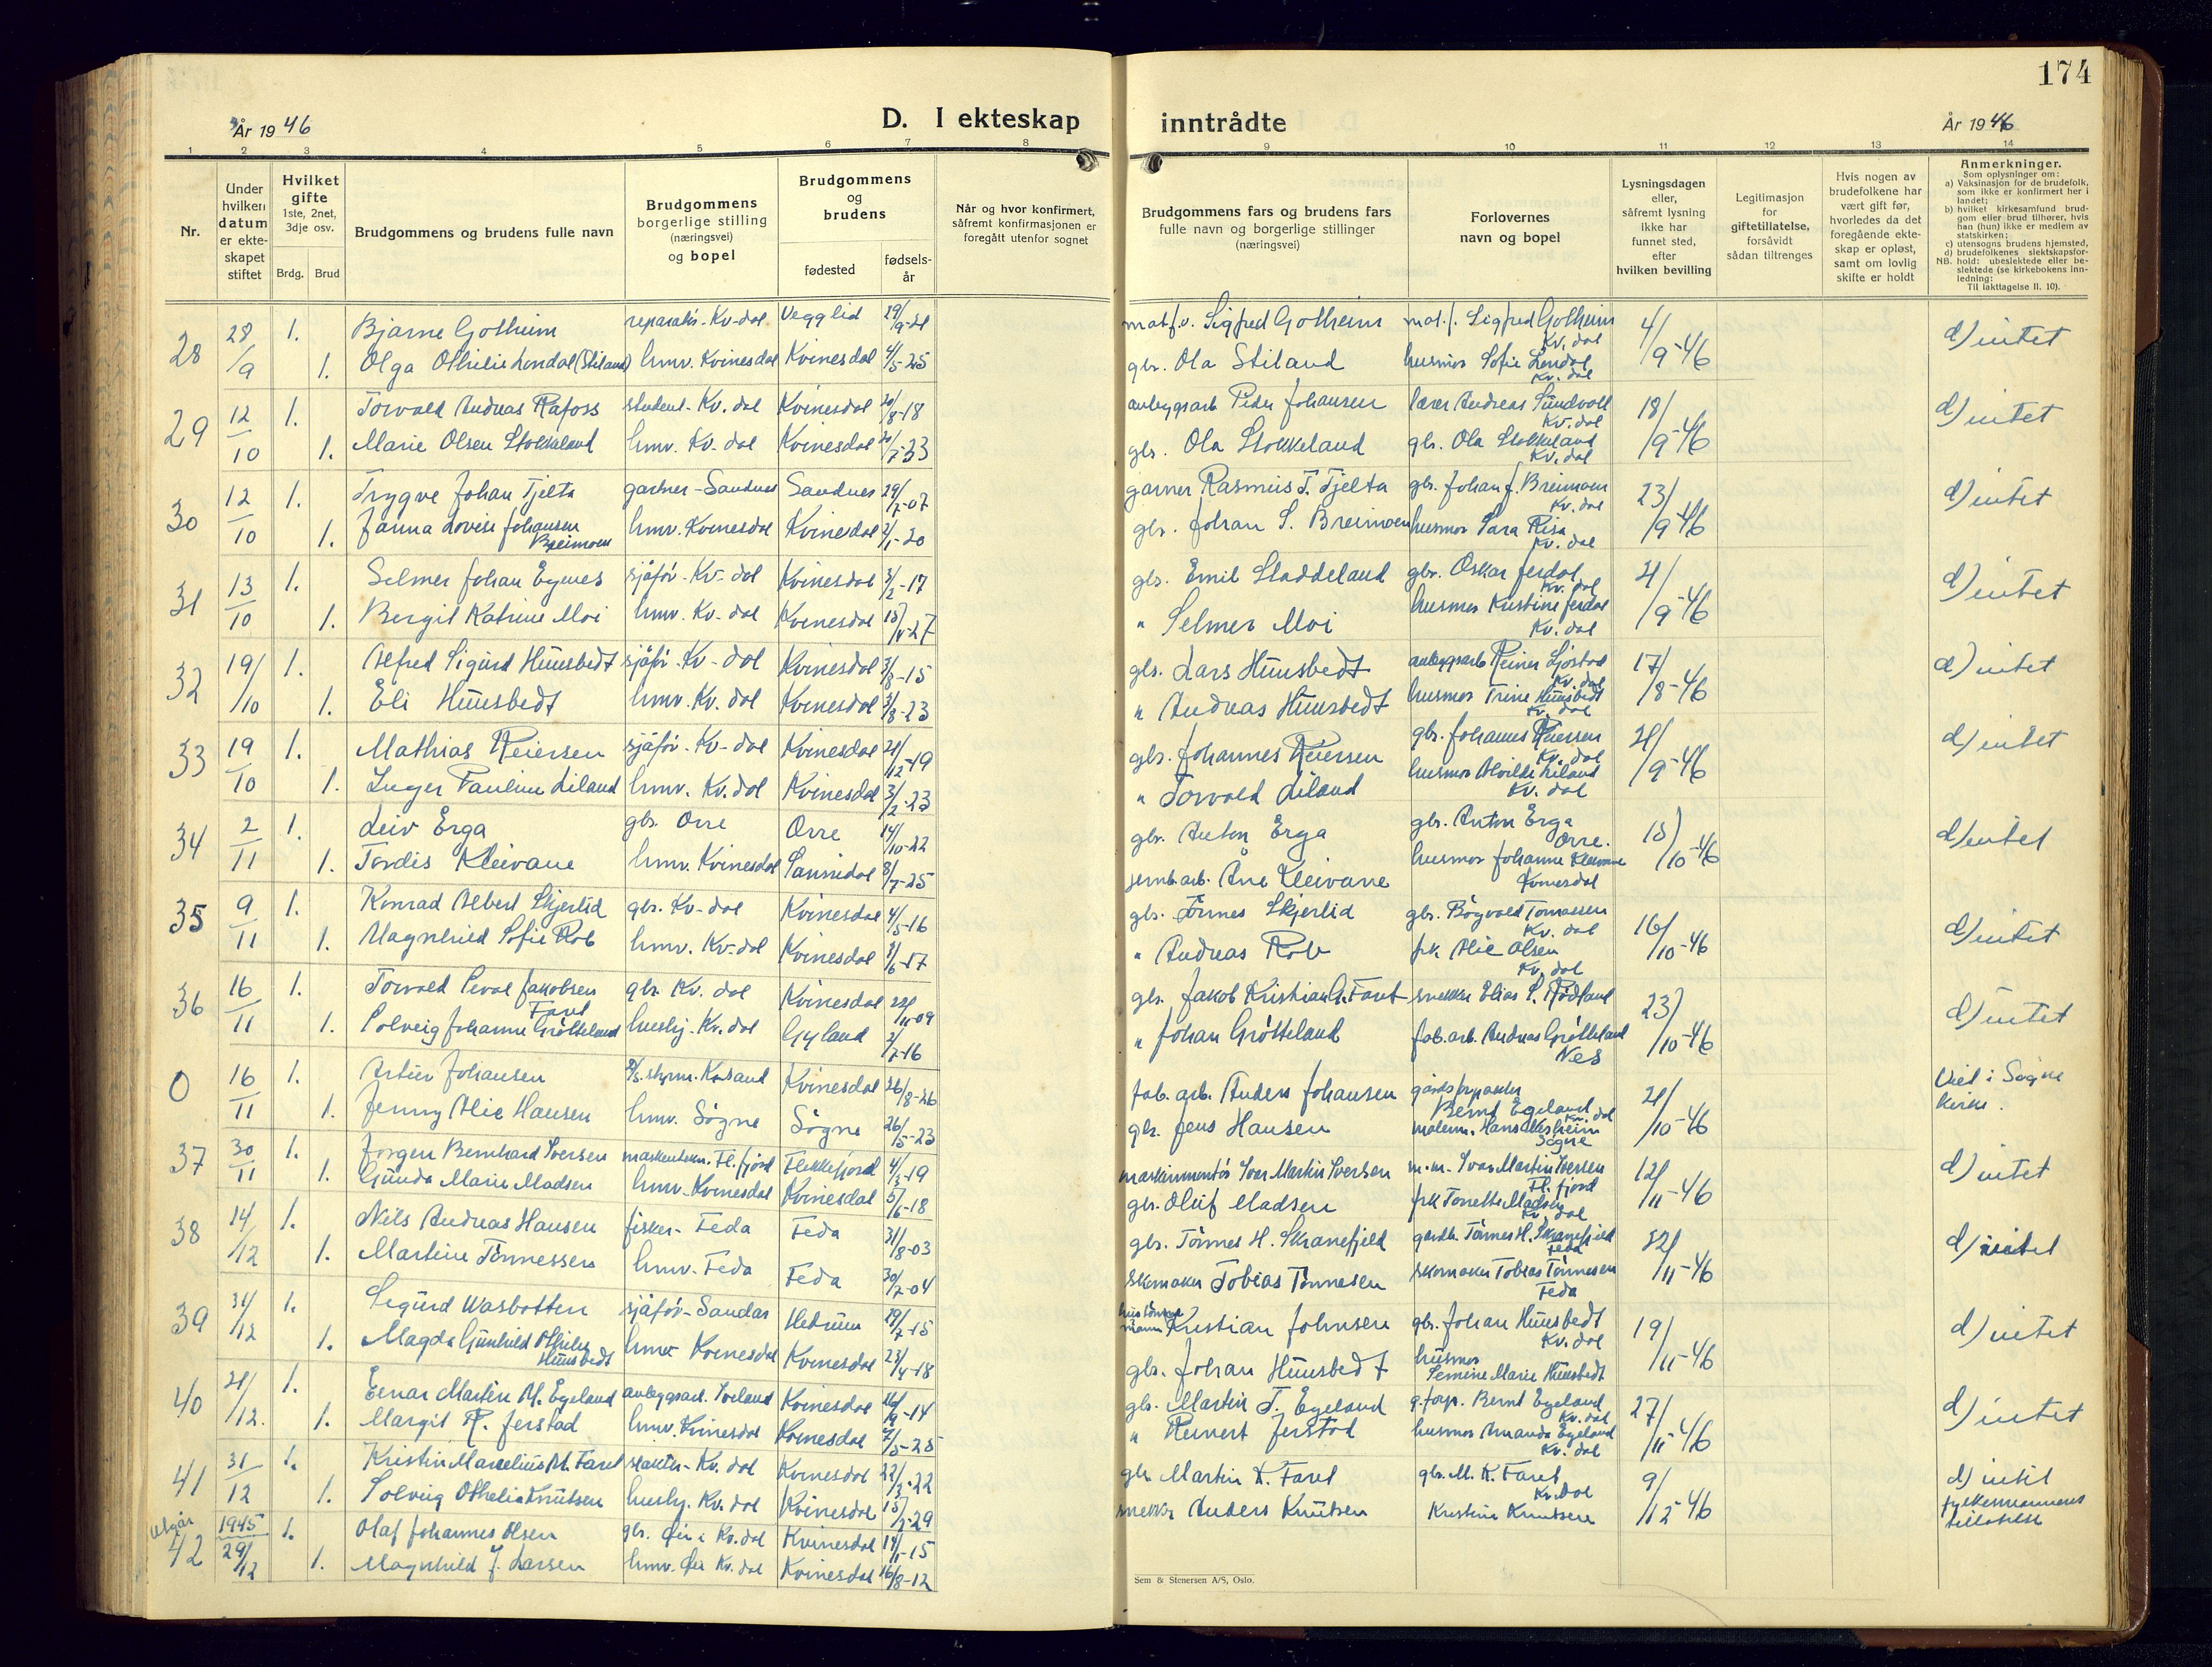 174
År 1946
D. I ekteskap inntrådte
År 1946
1 2 3 4 5 6 7 8 9 10 11 12 13 14
Nr.
Under hvilken datum er ekteskapet stiftet
Hvilket gifte 1ste, 2net, 3dje osv.
Brdg. Brud
Brudgommens og brudens fulle navn
Brudgommens borgerlige stilling (næringsvei) og bopel
Brudgommens og brudens
fødested
fødselsår
Når og hvor konfirmert, såfremt konfirmasjonen er foregått utenfor sognet
Brudgommens fars og brudens fars fulle navn og borgerlige stillinger (næringsvei)
Forlovernes navn og bopel
Lysningsdagen eller, såfremt lysning ikke har funnet sted, efter hvilken bevilling
Legitimasjon for giftetillatelse, forsåvidt sådan tiltrenges
Hvis nogen av brudefolkene har vært gift før, hvorledes da det foregående ekteskap er opløst, samt om lovlig skifte er holdt
Anmerkninger.
Som oplysninger om:
a) Vaksinasjon for de brudefolk, som ikke er konfirmert her i landet;
b) hvilket kirkesamfund brudgom eller brud tilhører, hvis han (hun) ikke er medlem av statskirken;
c) utensogns brudens hjemsted,
d) brudefolkenes slektskapsforhold: ubeslektede eller beslektede (se kirkebokens innledning:
NB. Til iakttagelse II. 10).
28 28/9 1. Bjarne Gotheim Kv-dal Vegglid Sigfred Gotheim Sigfred Gotheim Kv. dal 4/9-46 d) intet
1. Olga Othilie Londal (Stiland) hmv. Kvinesdal Kvinesdal 4/5-25 gbr. Ola Stiland husmor Sofie Londal Kv. dal
29 12/10 1. Torvald Andreas Rafoss student - Kv. dal Kvinesdal 20/8-18 anleggsarb Peder Johansen lærer Andreas Sundvoll Kv. dal 18/9-46 d) intet
1. Marie Olsen Stokkeland hmv. Kv. dal Kvinesdal gbr. Ola Stokkeland gbr. Ola Stokkeland Kv. dal
30 12/10 1. Trygve Johan Tjelta gartner - Sandnes Sandnes 29/7-07 garner Rasmus T. Tjelta gbr. Johan J. Breimoen Kv. dal 23/9-46 d) intet
1. Janna Lovise Johansen Breimoen hmv. Kvinesdal Kvinesdal 2/1-20 gbr. Johan S. Breimoen husmor Sara Risa Kv. dal
31 13/10 1. Selmer Johan Egenes sjåfør - Kv- dal Kvinesdal 3/2-17 gbr. Emil Staddeland gbr. Oskar Jerdal Kv. dal 21/9-46 d) intet
1. Bergit Katrine Moi hmv. Kv- dal Kvinesdal " Selmer Moi husmor Kristine Jerdal Kv. dal
32 19/10 1. Alfred Sigurd Hunsbedt sjåfør - Kv- dal Kvinesdal 3/8-15 gbr. Lars Hunsbedt anleggsarb Reiner Sjøstad Kv. dal 17/8-46 d) intet
1. Eli Hunsbedt hmv. Kv. dal Kvinesdal " Andreas Hunsbedt husmor Trine Hunsbedt Kv. dal
33 19/10 1. Mathias Reiersen sjåfør - Kv- dal Kvinesdal 21/12-19 gbr. Johannes Reiersen gbr. Johannes Reiersen Kv. dal 21/9-46 d) intet
1. Inger Pauline Liland hmv. Kv. dal Kvinesdal 3/2-23 " Torvald Liland husmor Alvilde Liland Kv. dal
34 2/11 1. Leiv Erga gbr. Orre Orre 14/10-22 gbr. Anton Erga gbr. Anton Erga Orre. 18/10-46 d) intet
1. Tordis Kleivane hmv. Kvinesdal Sannidal 8/7-25 jernb.arb. Åne Kleivane husmor Johanne Kleivane Kvinesdal
35 9/11 1. Konrad Albert Skjerlid gbr. Kv-dal Kvinesdal 4/5-16 gbr. Tønnes Skjerlid gbr. Bøgvald Tomassen Kv. dal 16/10-46 d) intet
1. Magnhild Sofie Rob hmv. Kv-dal Kvinesdal " Andreas Rob frk. Alie Olsen Kv. dal
36 16/11 1. Torvald Jakobsen Faret gbr. Kv. dal Kvinesdal gbr. Jakob Kristian Faret snekker Elias S. Rødland 23/10-46 d) intet
1. Solveig Johanne Grøtteland hushj. Kv. dal Gyland 2/7-16 " Johan Grøtteland fab.arb. Andreas Grøtteland Nes
0 16/11 1. Artur Johansen Kvinesdal 26/8-26 fab. arb. Anders Johansen gårdsforpakter Bernt Egeland Kv. dal 21/10-46 Viet i Søgne kirke.
1. Jenny Alie Hansen hmv. Søgne Søgne 26/5-23 gbr. Jens Hansen malerm. Hans Søgne
37 30/11 1. Jørgen Bernhard Iversen Fl. fjord Flekkefjord 4/3-19 maskinmontør Ivar Martin Iversen m.m. Ivar Martin Iversen Fl. fjord 12/11-46 d) intet
1. Gunda Marie Madsen hmv. Kvinesdal Kvinesdal gbr. Oluf Madsen frk Tonette Madsen Kv. dal
38 14/12 1. Nils Andreas Hansen fisker - Feda Feda 31/8-03 gbr. Tønnes H. Skranefjeld gardbr. Tønnes H. Skranefjeld Feda 22/11-46 d) intet
1. Martine Tønnessen hmv. Feda Feda 30/7-04 skomaker Tobias Tønnesen skomaker Tobias Tønnesen Feda
39 1. Sigurd Wasbotten sjåfør - Sandar Hedrum 19/7-15 Kristian Johnsen gbr. Johan Hunsbedt Kv. dal 19/11-46 d) intet
1. Magda Gunhild Othilie Hunsbedt hmv Kvinesdal Kvinesdal 23/4-18 gbr. Johan Hunsbedt husmor Semine Marie Hunsbedt
40 21/12. 1. Einar Martin M. Egeland anleggsarb. Kvinesdal gbr. Martin T. Egeland g.forp. Bernt Egeland Kv. dal 27/11-46 d) intet
1. Margit R. Jerstad hmv. Kvinesdal Kvinesdal 7/5-25 " Reinert Jerstad husmor Amanda Egeland Kv. dal
41 31/12 1. Kristin Marcelius M. Faret Kv. dal Kvinesdal 22/3-22 gbr Martin K. Faret gbr. M. K. Faret Kv. dal 9/12-46 d) intet
1. Solveig Othelie Knutsen hushj. Kv. dal Kvinesdal snekker Anders Knutsen Kristine Knutsen fylkesmannens tillatelse
utgår 42 1945 29/12 1. Olaf Johannes Olsen gbr. Øie i Kv. dal Kvinesdal
1. Magnhild J. Larsen hmv. Øie Kv. dal Kvinesdal 16/8-12
Sem & Stenersen A/S, Oslo.